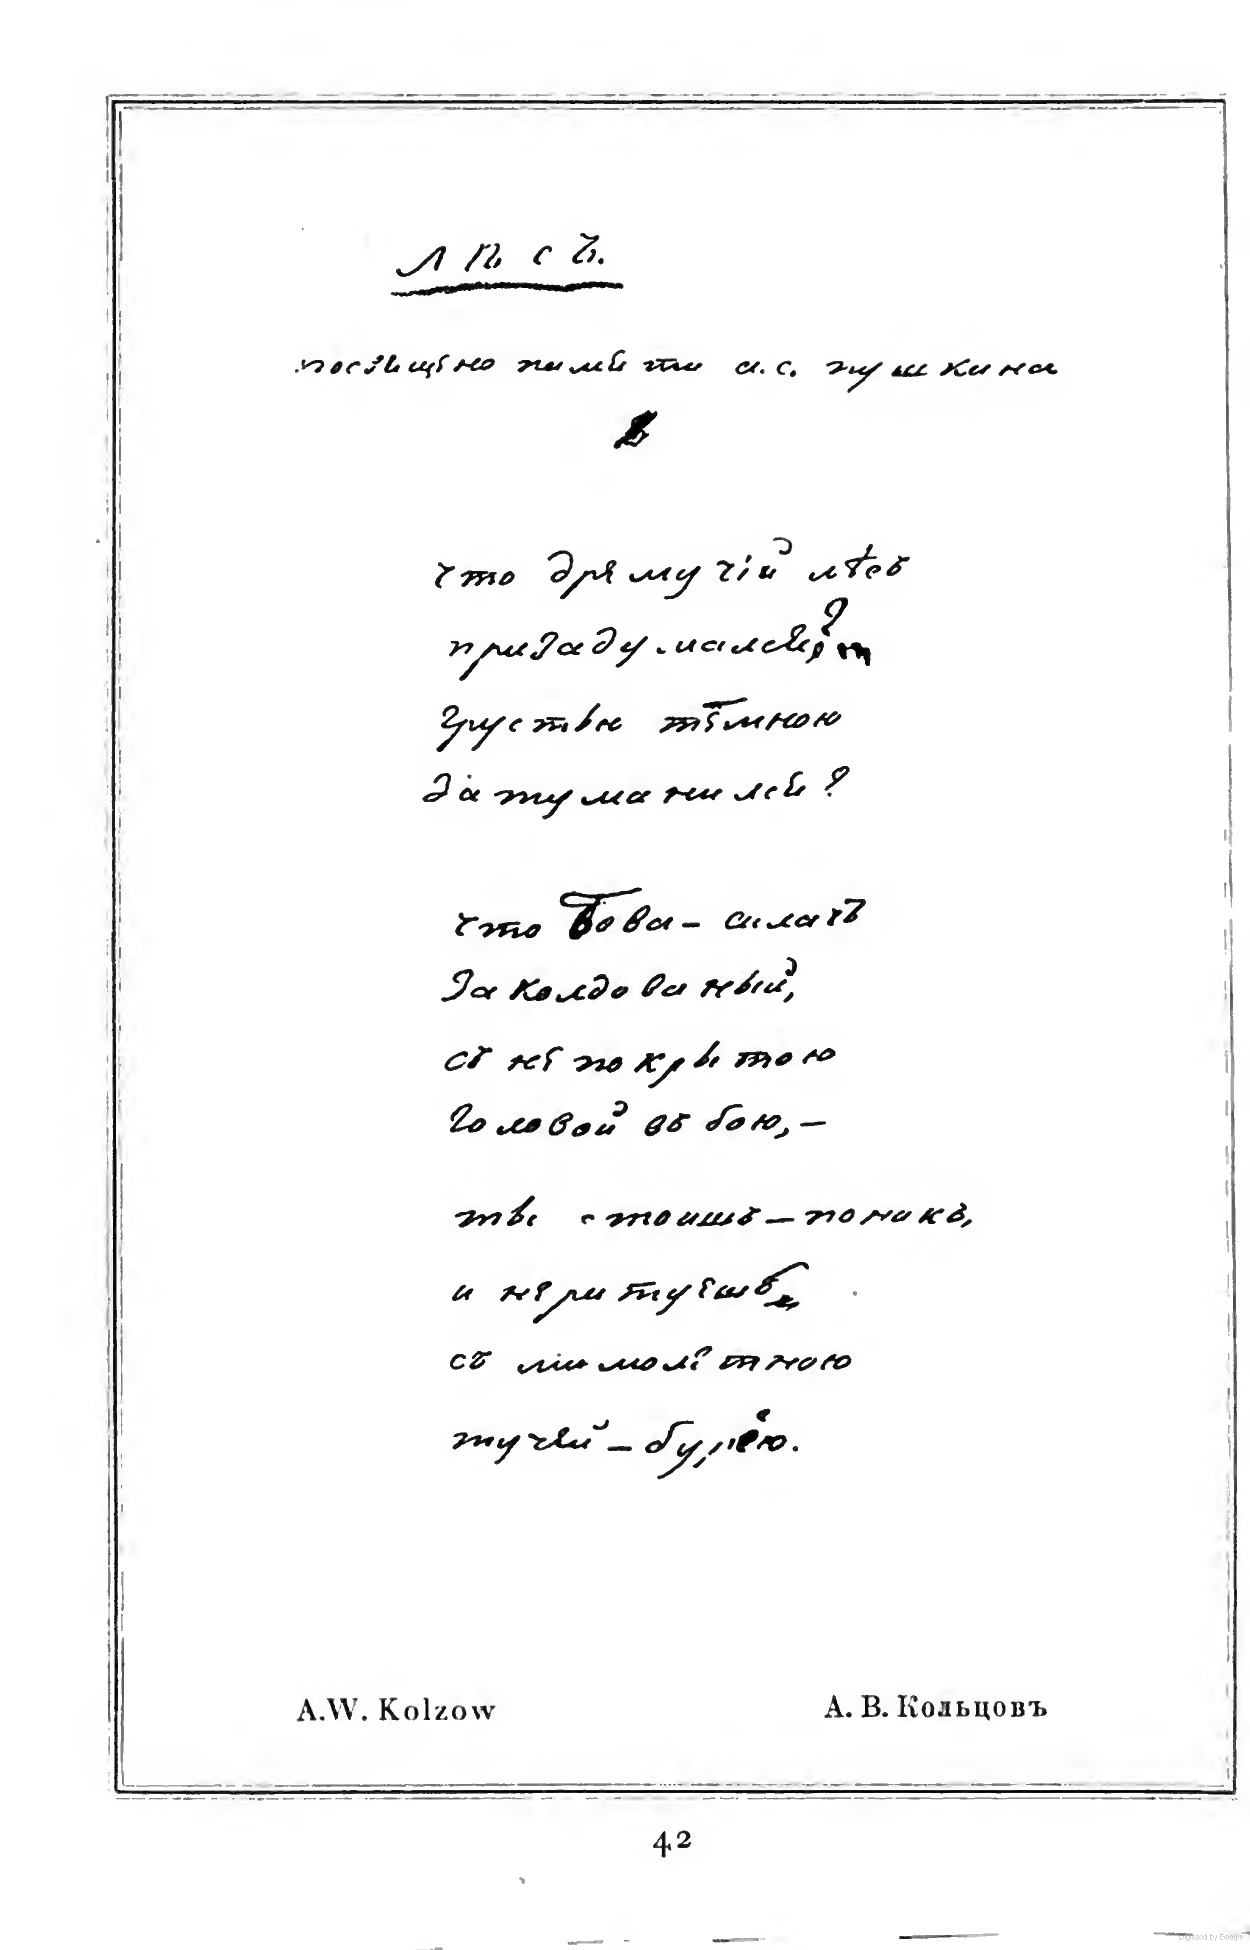 Лѣсъ.
посвящено памяти а. с. пушкина
что дрямучій лѣсъ
призадумался,
Грустью тёмною
Затуманился?
что Бова - силачъ
Заколдованый,
съ непокрытою
Головой въ бою, -
ты стоишь - поникъ,
и не ритуешь
съ мимолетною
тучей - бурею.
A.W. Kolzow
А. В. Кольцовъ
42
Digitized by Google